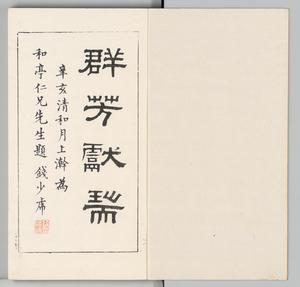 群芳獻瑞
辛亥清和月上澣為
和亭仁兄先生題 錢少席